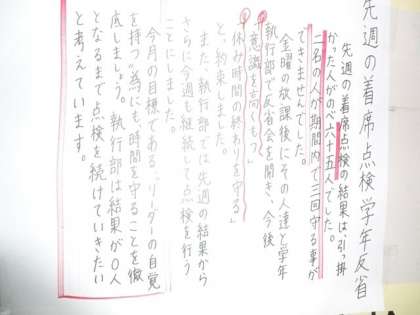 先週の着席点検学年反省
先週の着席点検の結果は、引っ掛
かった人がのべ六十五人でした。
二名の人が期間内で三回守る事が
できませんでした。
金曜の放課後にその人達と学年
執行部で反省会を開き、今後
「意識を高くもつ」
「休み時間の終わりを守る」
と、約束しました。
また、執行部では先週の結果から
さらに今週も継続して点検を行う
ことにしました。
今月の目標である、リーダーの自覚
を持つ為にも、時間を守ることを徹
底しましょう。執行部は結果が〇人
となるまで点検を続けていきたい
と考えています。